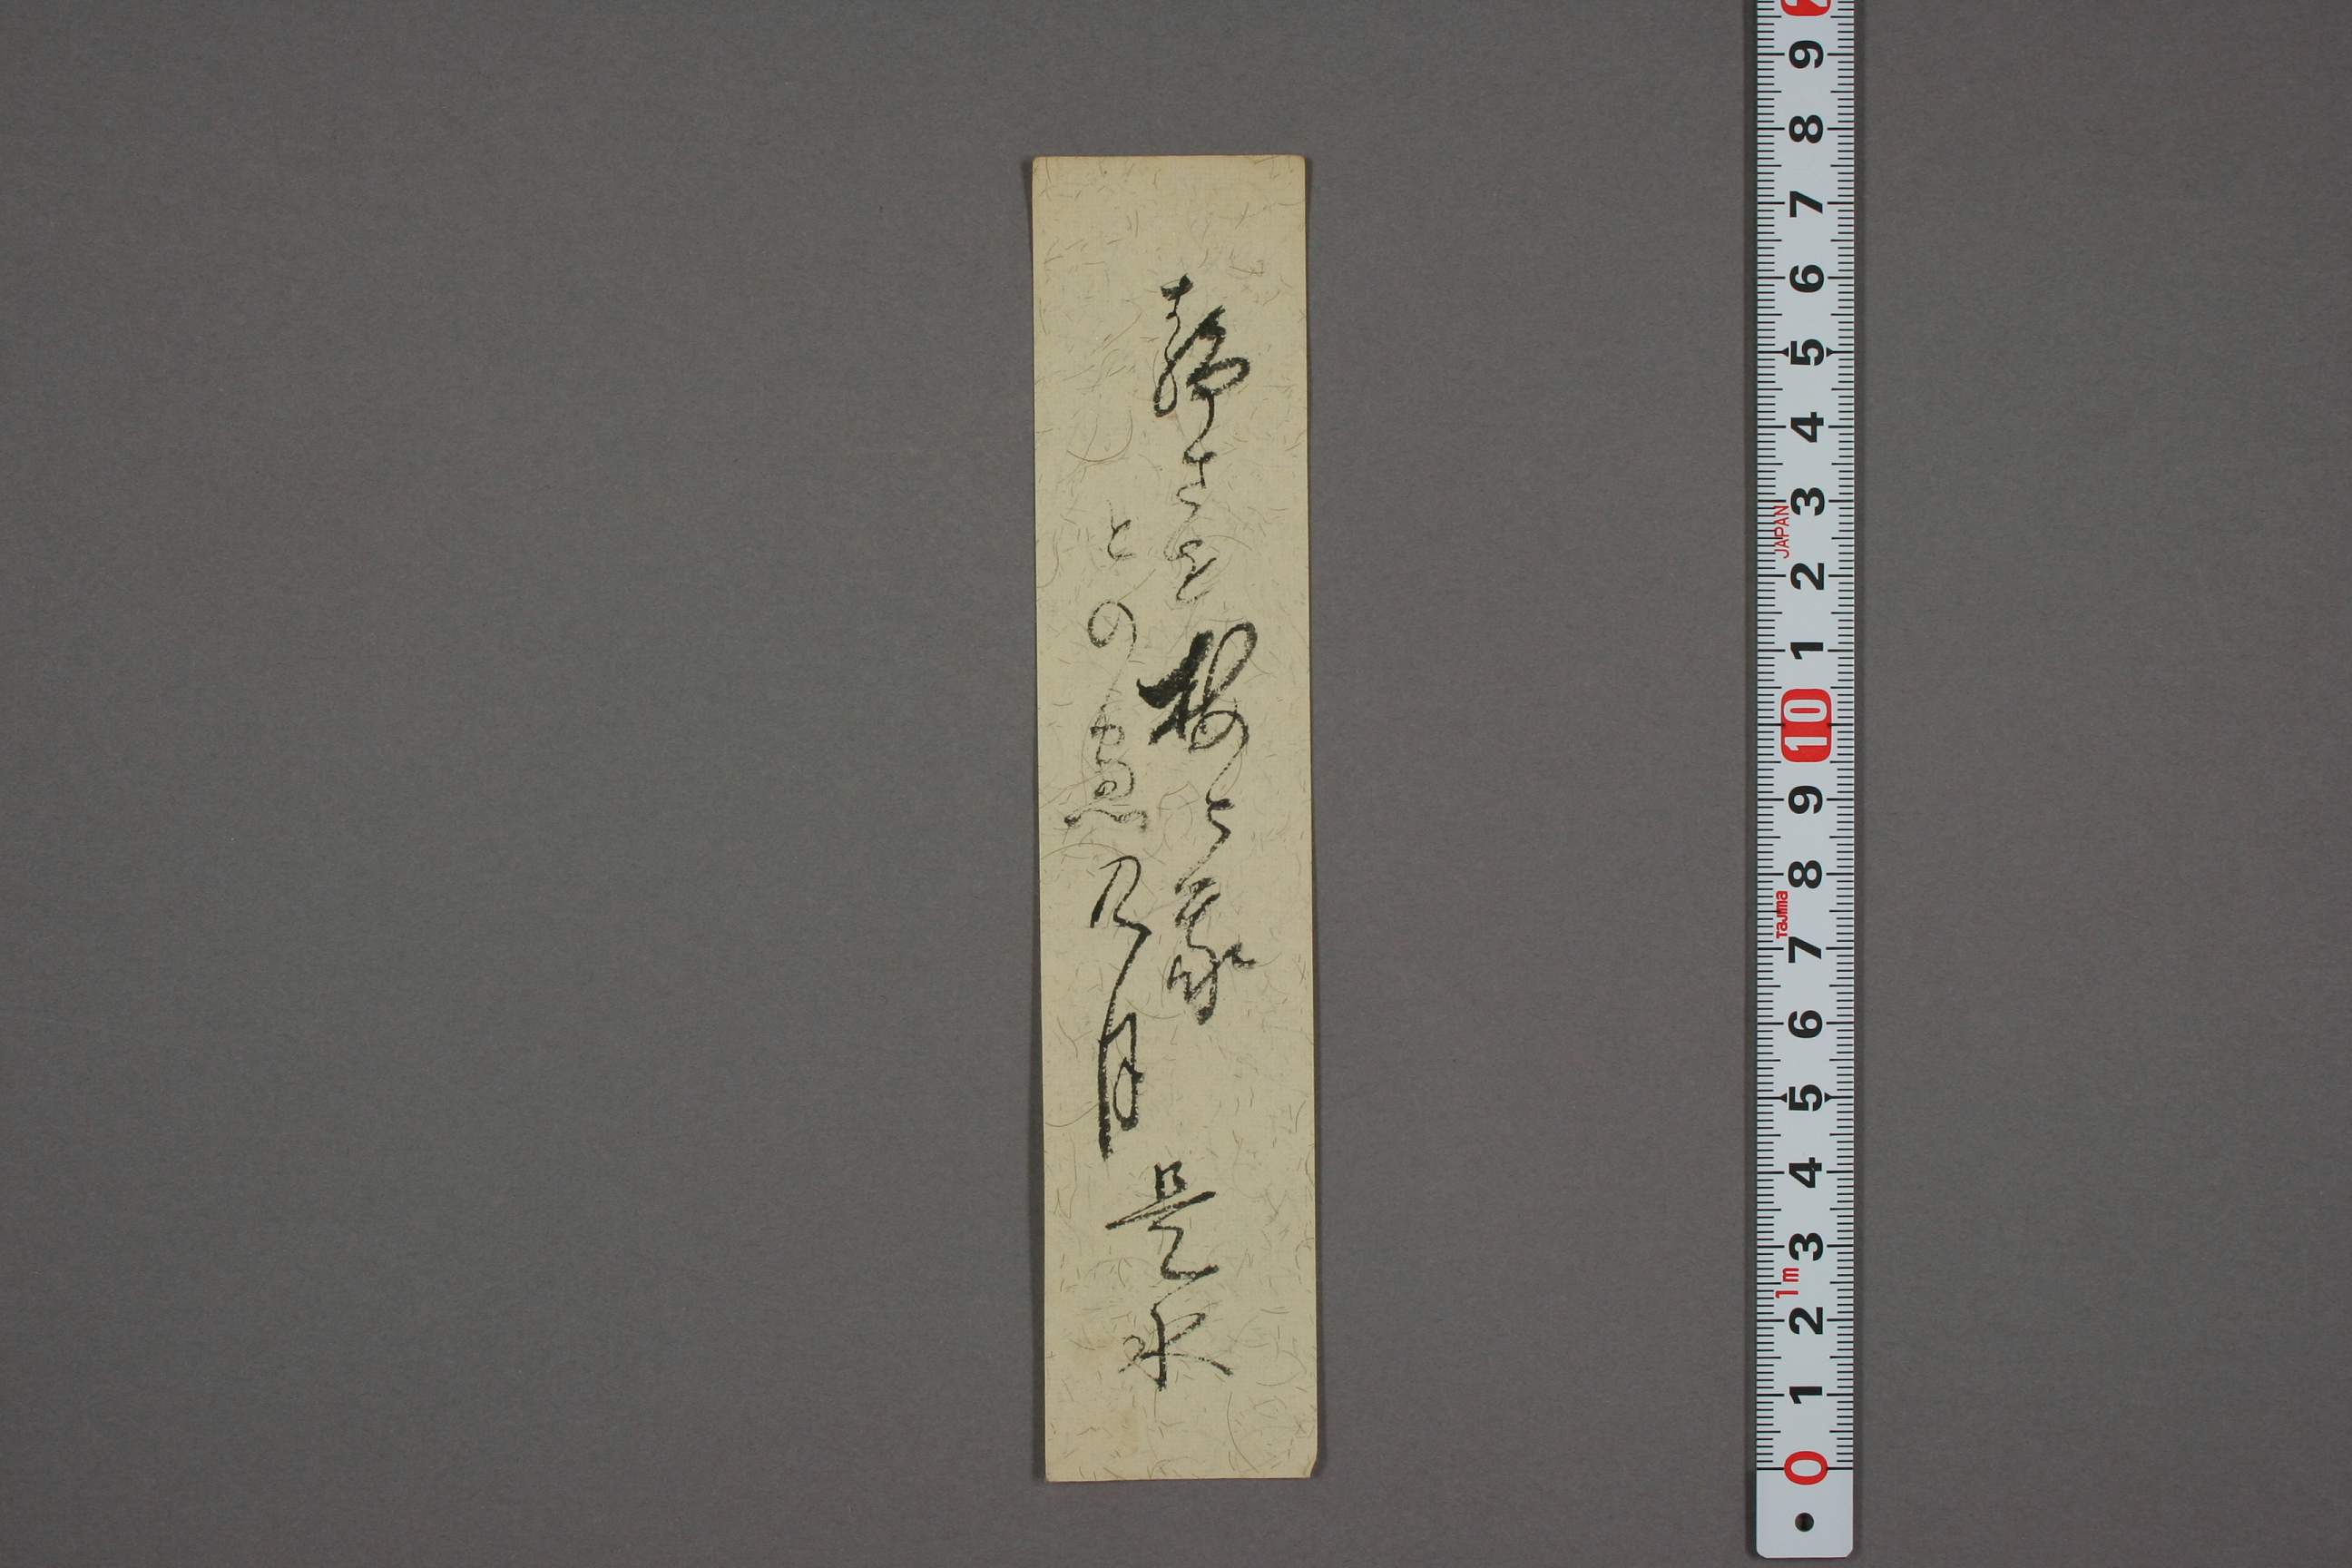 静さを梅と我
との窓乃月
是水
9
8
7
6
5
4
3
2
1
10
9
8
7
6
5
4
3
2
1
0
JAPAN
Tajima
1m